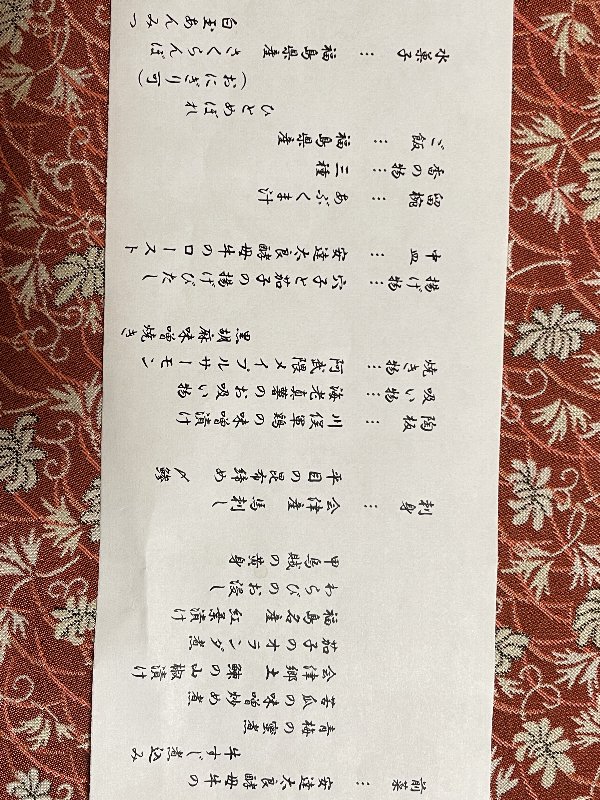 前菜 … 安達太良酵母牛の
牛すじ煮込み
青梅の蜜煮
苦瓜の味噌炒め煮
会津郷土 鰊の山椒漬け
茄子のオランダ煮
福島名産 紅葉漬け
わらびのお浸し
甲烏賊の黄身
刺身 … 会津産 馬刺し
平目の昆布締め 〆鯵
陶板 … 川俣軍鶏の味噌漬け
吸い物 … 海老真薯のお吸い物
焼き物 … 阿武隈メイプルサーモン
黒胡麻味噌焼き
揚げ物 … 穴子と茄子の揚げびたし
中皿 … 安達太良酵母牛のロースト
留椀 … あぶくま汁
香の物 … 三種
ご飯 … 福島県産
ひとめぼれ
(おにぎり可)
水菓子 … 福島県産 さくらんぼ
白玉あんみつ